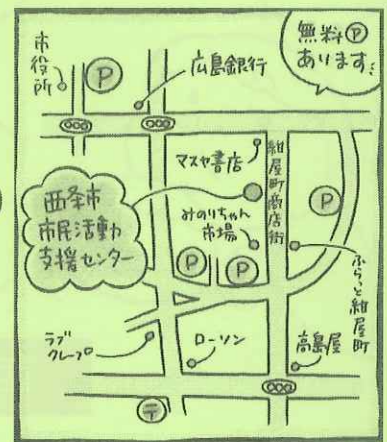 無料Ⓟ
あります!
市役所
Ⓟ
広島銀行
マスヤ書店
紺屋町商店街
西条市
市民活動
支援センター
みのりちゃん
市場
Ⓟ
Ⓟ
Ⓟ
ふらっと紺屋町
ラブ
クレープ
ローソン
高島屋
〒